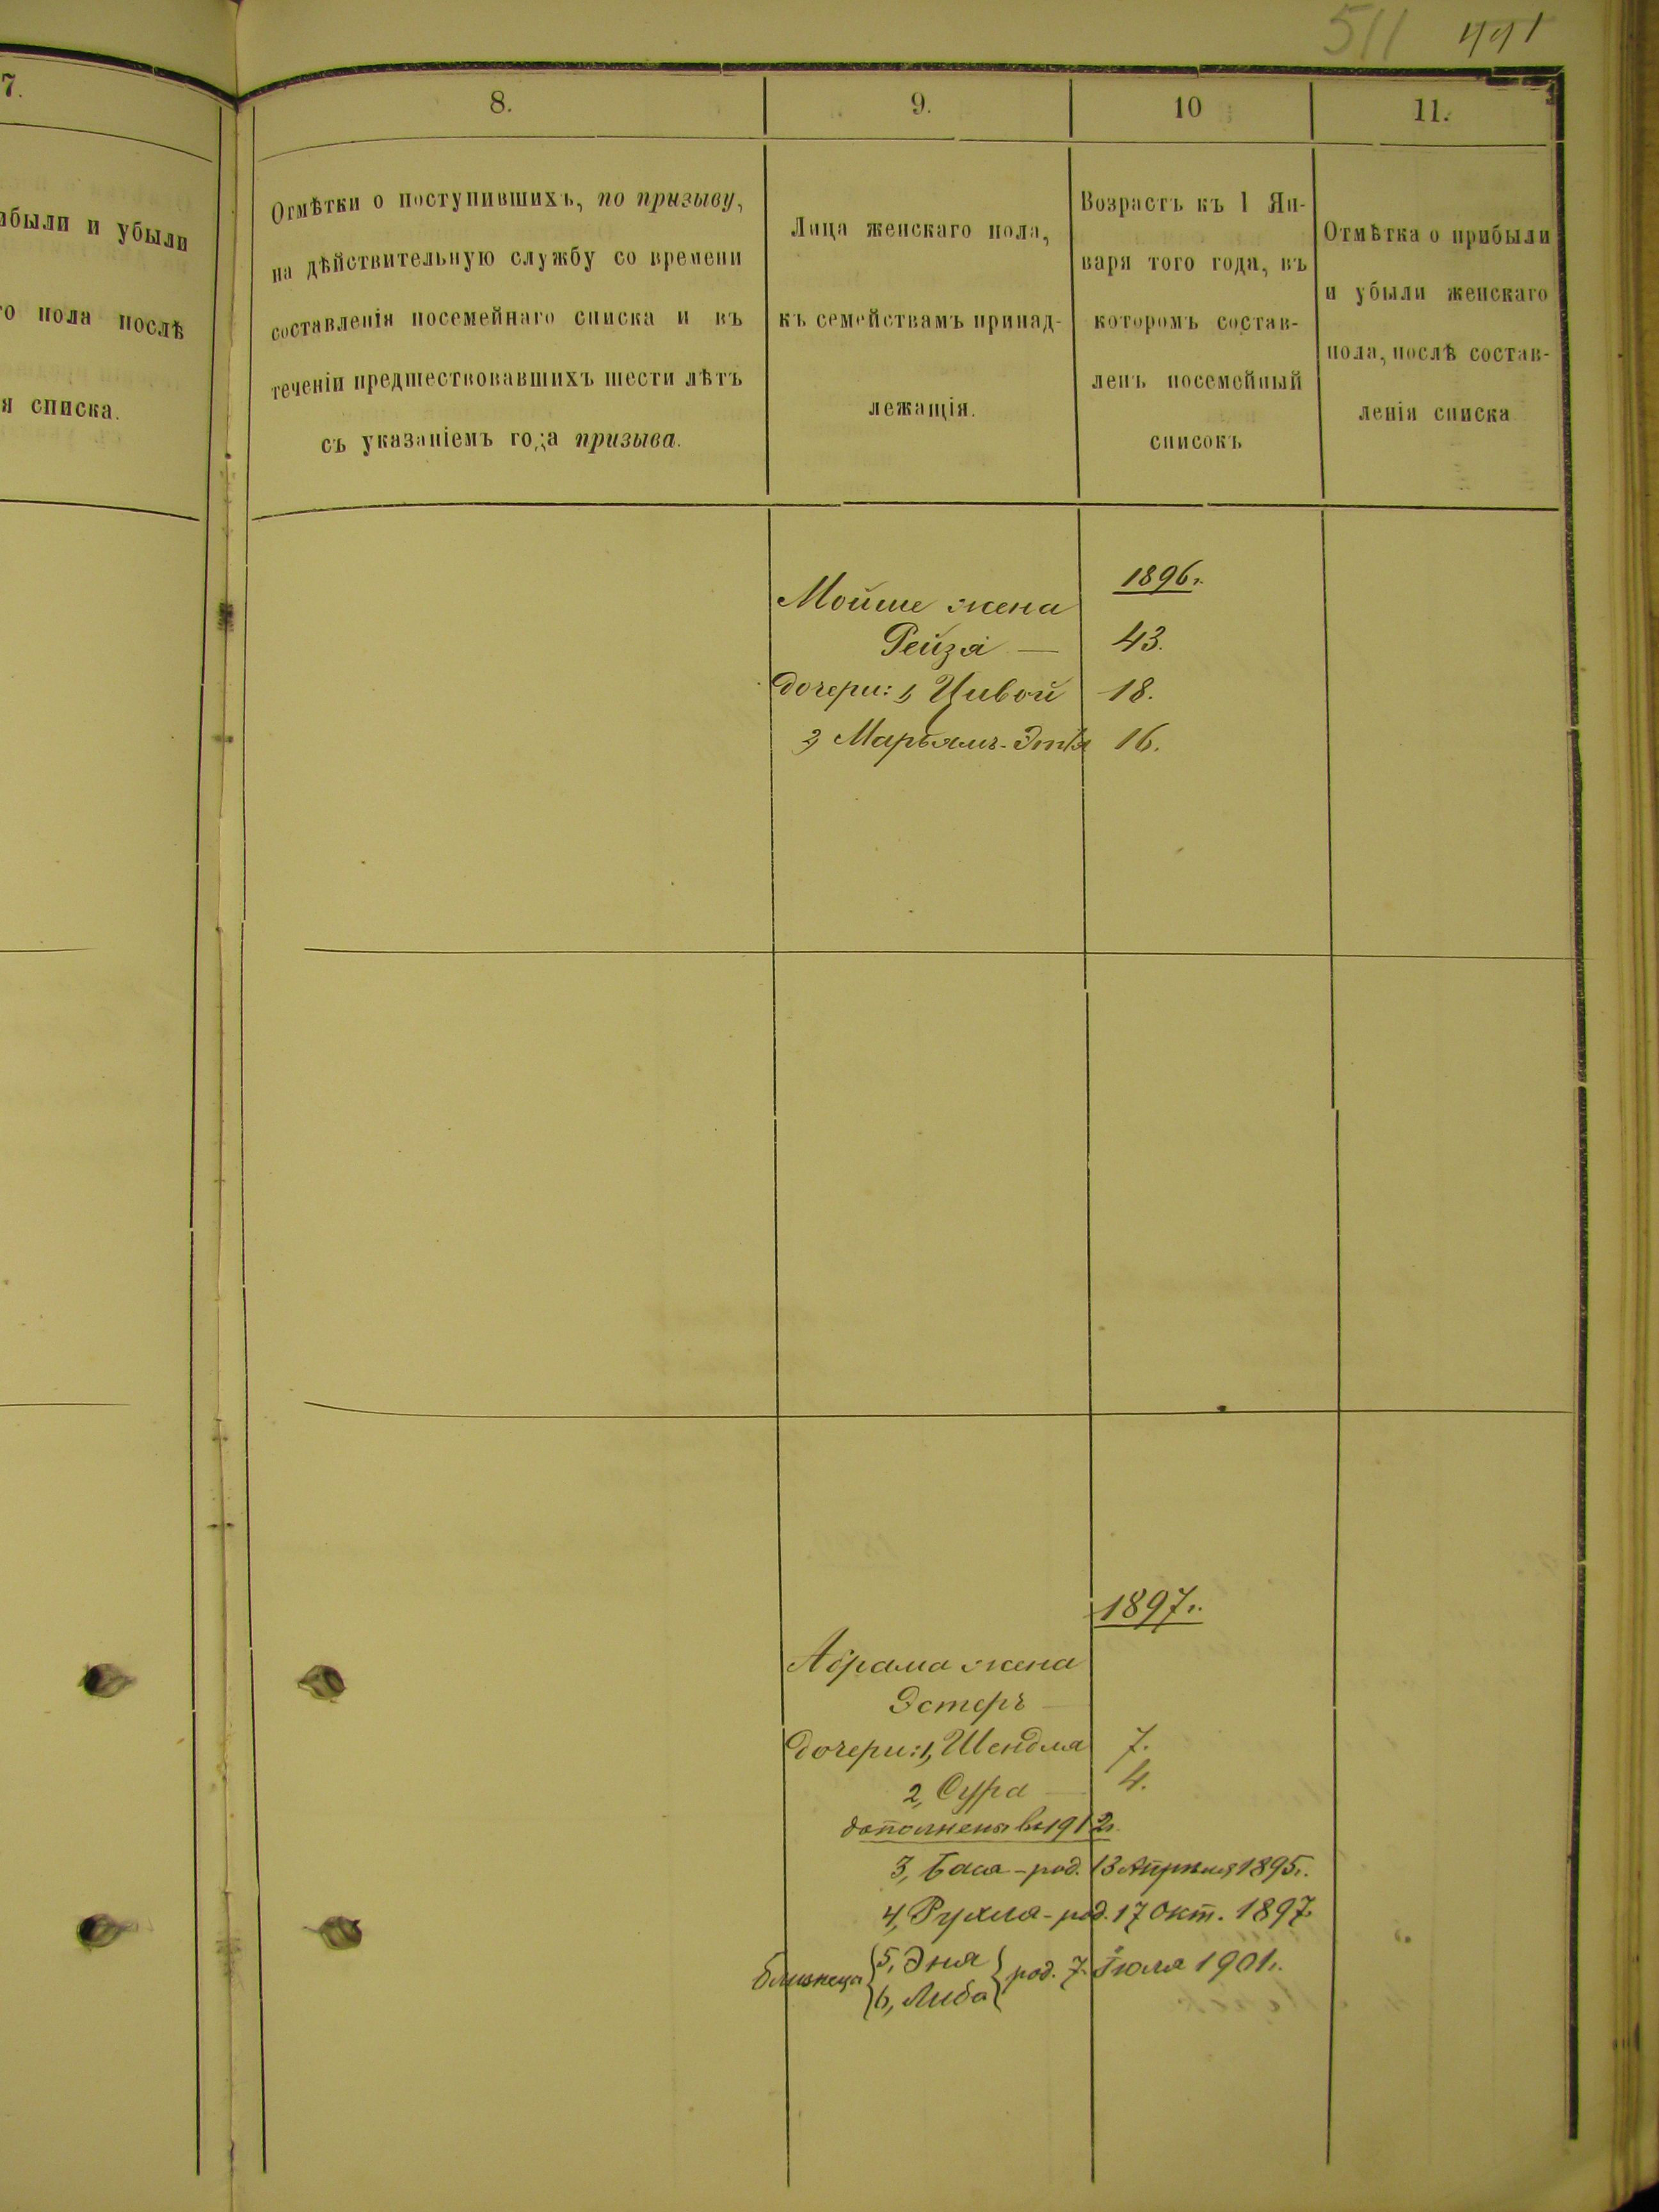 511 441
7.
ибыли и убыли
го пола послѣ
я списка.
8.
Отмѣтки о поступившихъ, по призыву,
на дѣйствительную службу со времени
составленія посемейнаго списка и въ
теченіи предшествовавшихъ шести лѣтъ
съ указаніемъ года призыва.
9.
Лица женскаго пола,
къ семействамъ принад-
лежащія.
10
Возрастъ къ 1 Ян-
варя того года, въ
которомъ состав-
ленъ посемейный
списокъ
11.
Отмѣтка о прибыли
и убыли женскаго
пола, послѣ состав-
ленія списка
1896г.
Мойше жена
Рейзя — 43.
дочери: 1, Цивой 18.
2, Марьямъ-Этля 16.
1897г.
Абрама жена
Эстеръ —
дочери: 1, Шендля 7.
2, Сура — 4.
дополнены въ 1912г.
3, Бася - род. 13 Апреля 1895г.
4, Рухля - род. 17 Окт. 1897
близнецы 5, Эня
6, Либа род. 7 Іюля 1901г.